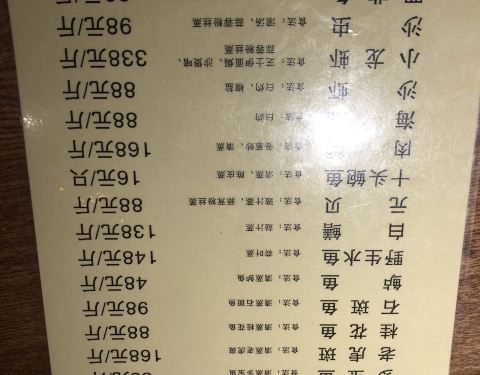 多宝鱼 食法：清蒸多宝鱼 88元/斤
老虎斑 食法：清蒸老虎斑 168元/斤
桂花鱼 食法：清蒸桂花鱼 88元/斤
石斑鱼 食法：清蒸石斑鱼 98元/斤
鲈鱼 食法：清蒸鲈鱼 48元/斤
野生水鱼 食法：荷叶蒸 148元/斤
白鳝 食法：豉汁蒸 138元/斤
元贝 食法：豉汁蒸、蒜蓉粉丝蒸 88元/斤
十头鲍鱼 食法：清蒸、陈皮蒸 16元/只
肉 食法：姜葱炒、清蒸 168元/斤
海 食法：白灼 88元/斤
沙虾 食法：白灼、椒盐 88元/斤
小龙虾 食法：芝士伊面焗、沙煲焗、 338元/斤
蒜蓉粉丝蒸
沙虫 食法：滚汤、蒜蓉粉丝蒸 98元/斤